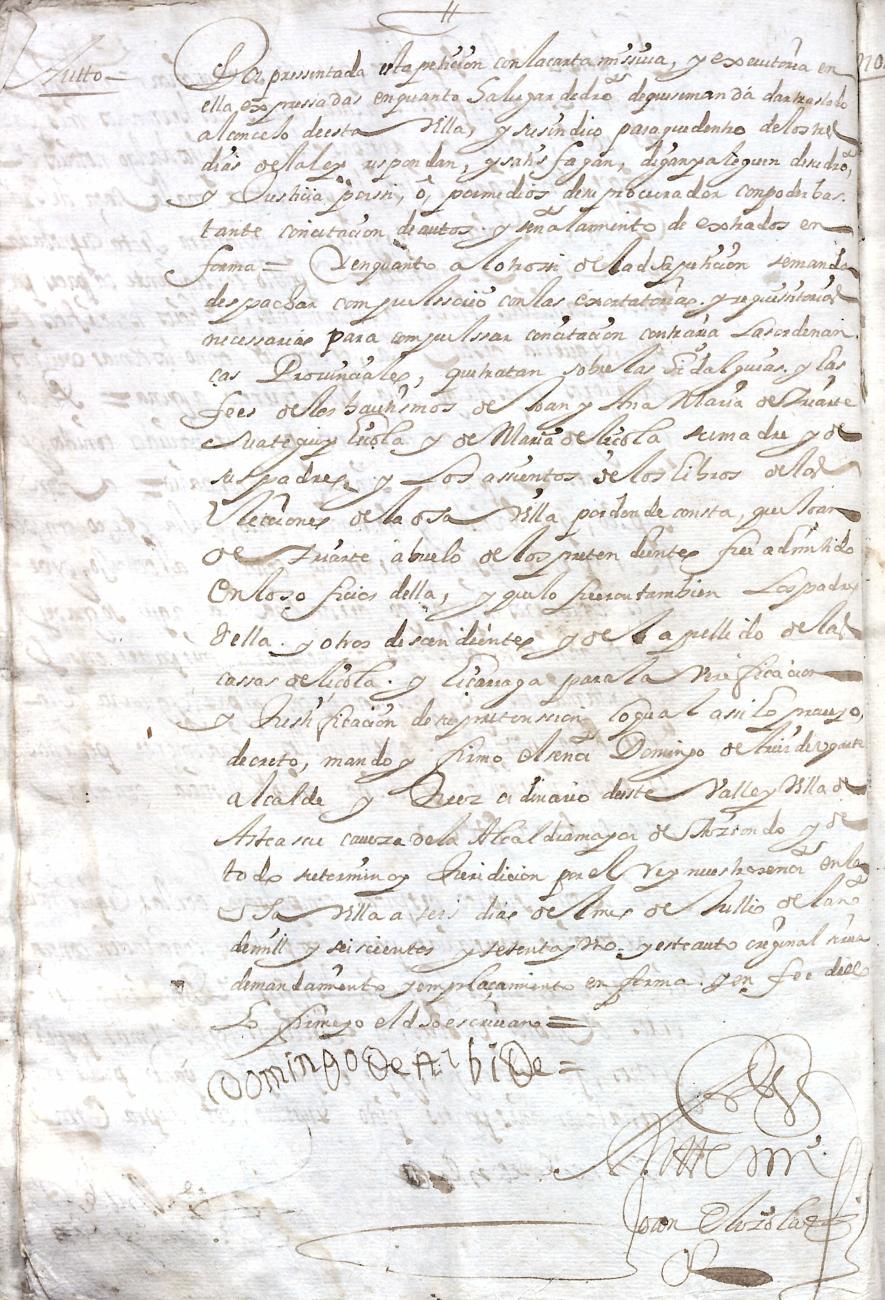 Autto =
Por pressentada esta peticion con la carta missiua, y executoria en
ella expressadas en quanto ha lugar de dro̅ de que se manda dar traslado
al conçelo de esta Villa, y su sindico para que dentro de los tres
dias de la ley respondan, y satisfagan, digan y aleguen de su dro̅,
y Justicia por si, ô, por medios de su procurador con poder bas
tante con citacion de autos y señalamiento de estrados en
forma = Y en quanto a lo trossi de la dha peticion se manda
despachar compulssorio con las exortatorias y requisitorias
necessarias para compulssar con citacion contraria las ordenan
cas Prouinciales, que tratan sobre las Hidalguias y las
fees de los bautismos de Joan y Ana Maria de Iriarte
y Licola y de Maria de Licola su madre y de
sus padres y Los assientos de los Libros de las
Elecciones de la dha Villa por donde consta, que Joan
de Iriarte abuelo de los pretendientes fue admitido
en los oficios della, y que lo fueron tambien Los padres
della y otros descendientes y del apellido de las
cassas de Licola y Licarraga para la Verificacion
y Justificacion de su pretenssion lo qual assi Lo proueyo,
decreto, mando y firmo el señor Domingo de
alcalde y Juez ordinario deste Valle y Villa de
Astiasu caueza de la Alcaldia mayor de Aiztondo y de
todo su termino y Juridicion por el Rey nuestro señor en la
dha Villa a seis dias del mes de Jullio de laño
de mill y seiscientos y setenta y y este auto original sirua
de mandamiento y emplaçamiento en forma y en fee dello
Lo firme yo el dho escriuano =
Domingo De Ar bi De =
Ante mi
Joan